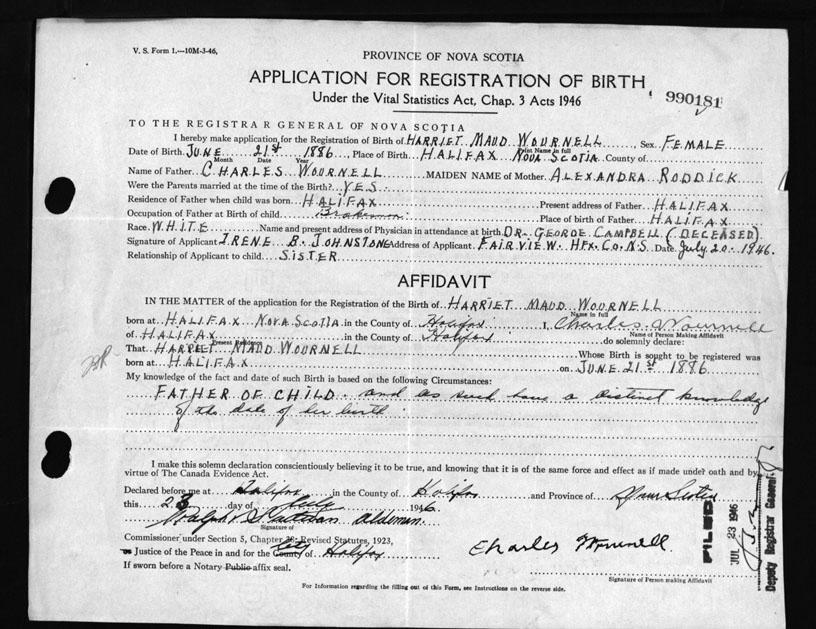 V. S. Form 1.—10M-3-46,
PROVINCE OF NOVA SCOTIA
APPLICATION FOR REGISTRATION OF BIRTH
Under the Vital Statistics Act, Chap. 3 Acts 1946
990181
TO THE REGISTRAR GENERAL OF NOVA SCOTIA
I hereby make application for the Registration of Birth of HARRIET MAUD WOURNELL Sex FEMALE
Print Name in full
Date of Birth JUNE 21st 1886, Place of Birth HALIFAX NOVA SCOTIA County of
Month Date Year
Name of Father CHARLES WOURNELL MAIDEN NAME of Mother ALEXANDRA RODDICK
Were the Parents married at the time of the Birth? YES
Residence of Father when child was born HALIFAX Present address of Father HALIFAX
Occupation of Father at Birth of child Brakeman Place of birth of Father HALIFAX
Race WHITE Name and present address of Physician in attendance at birth DR. GEORGE CAMPBELL (DECEASED)
Signature of Applicant IRENE B. JOHNSTONE Address of Applicant FAIRVIEW. HFX. CO. N.S. Date July 20. 1946.
Relationship of Applicant to child SISTER
AFFIDAVIT
IN THE MATTER of the application for the Registration of Birth of HARRIET MAUD WOURNELL
Name in full
born at HALIFAX NOVA SCOTIA in the County of Halifax I, Charles Wournell
Name of Person Making Affidavit
of HALIFAX in the County of Halifax do solemnly declare:
Present Residence
That HARRIET MAUD WOURNELL Whose Birth is sought to be registered was
born at HALIFAX on JUNE 21st 1886
My knowledge of the fact and date of such Birth is based on the following Circumstances:
FATHER OF CHILD. and as such have a distinct knowledge
of the date of her birth.
I make this solemn declaration conscientiously believing it to be true, and knowing that it is of the same force and effect as if made under oath and by
virtue of The Canada Evidence Act.
Declared before me at Halifax in the County of Halifax and Province of Nova Scotia
this 23 day of July 1946
Alderman.
Signature of
Commissioner under Section 5, Chapter 38, Revised Statutes, 1923,
or Justice of the Peace in and for the County of City Halifax
Charles Wournell
If sworn before a Notary Public affix seal.
Signature of Person making Affidavit
For Information regarding the filling out of this Form, see Instructions on the reverse side.
FILED
JUL 23 1946
Deputy Registrar General